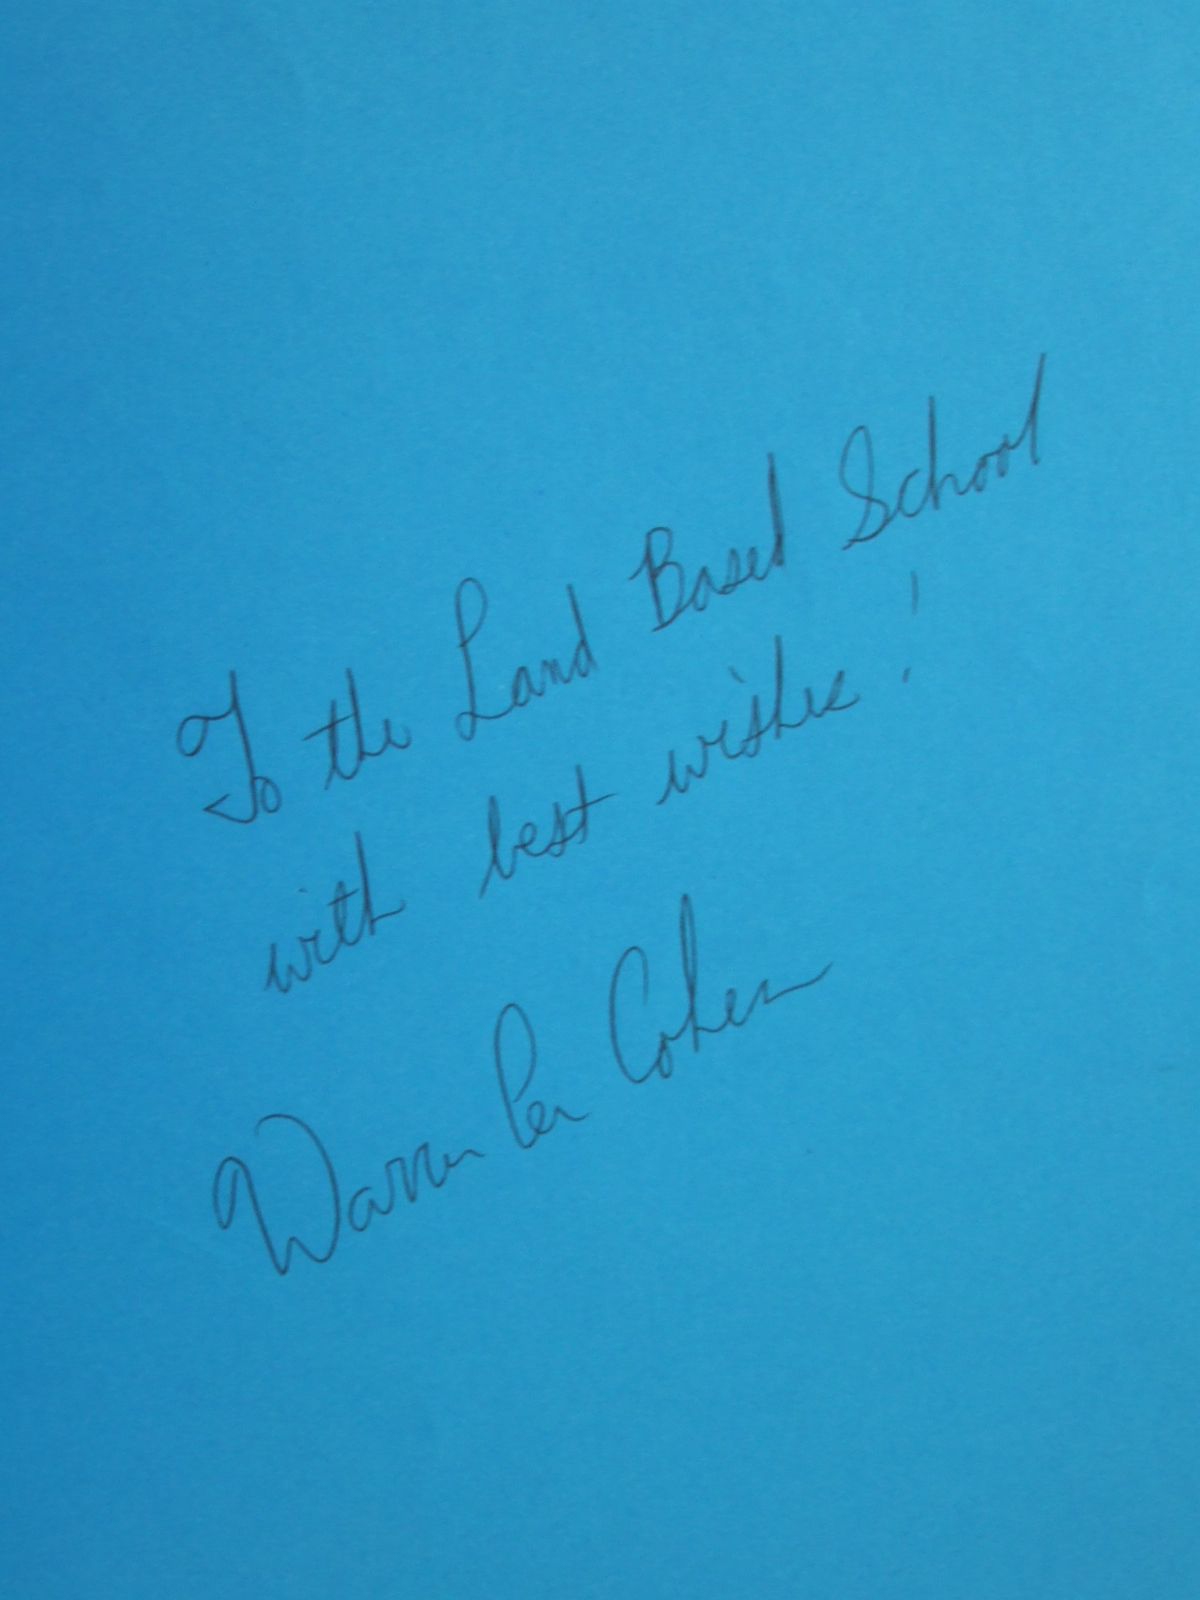 To the Land Based School
with best wishes!
Warren Lee Cohen